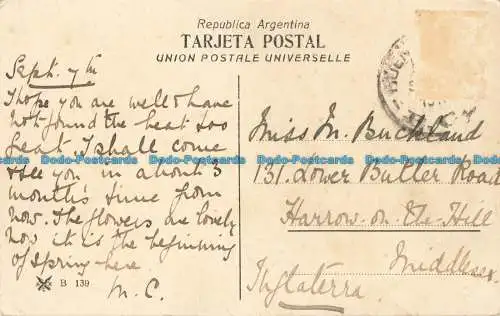 Republica Argentina
TARJETA POSTAL
UNION POSTALE UNIVERSELLE
Sept. 7th
I hope you are well & have
not found the heat too
great. I shall come
& see you in about 3
month's time from
now. The flowers are lovely
now it is the beginning
of spring here.
M. C.
B 139
BUEN
Miss M. Buckland
131. Lower Butler Road
Harrow-on-the-Hill
Middlesex
Inglaterra.
Dodo-Postcards Dodo-Postcards Dodo-Postcards Dodo-Postcards